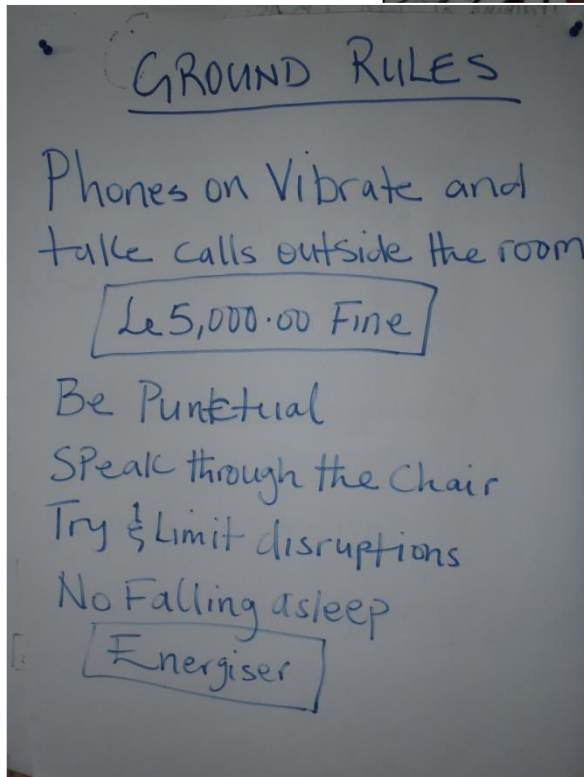 GROUND RULES
Phones on Vibrate and
take calls outside the room
Le 5,000.00 Fine
Be Punctual
Speak through the Chair
Try & Limit disruptions
No Falling asleep
Energiser